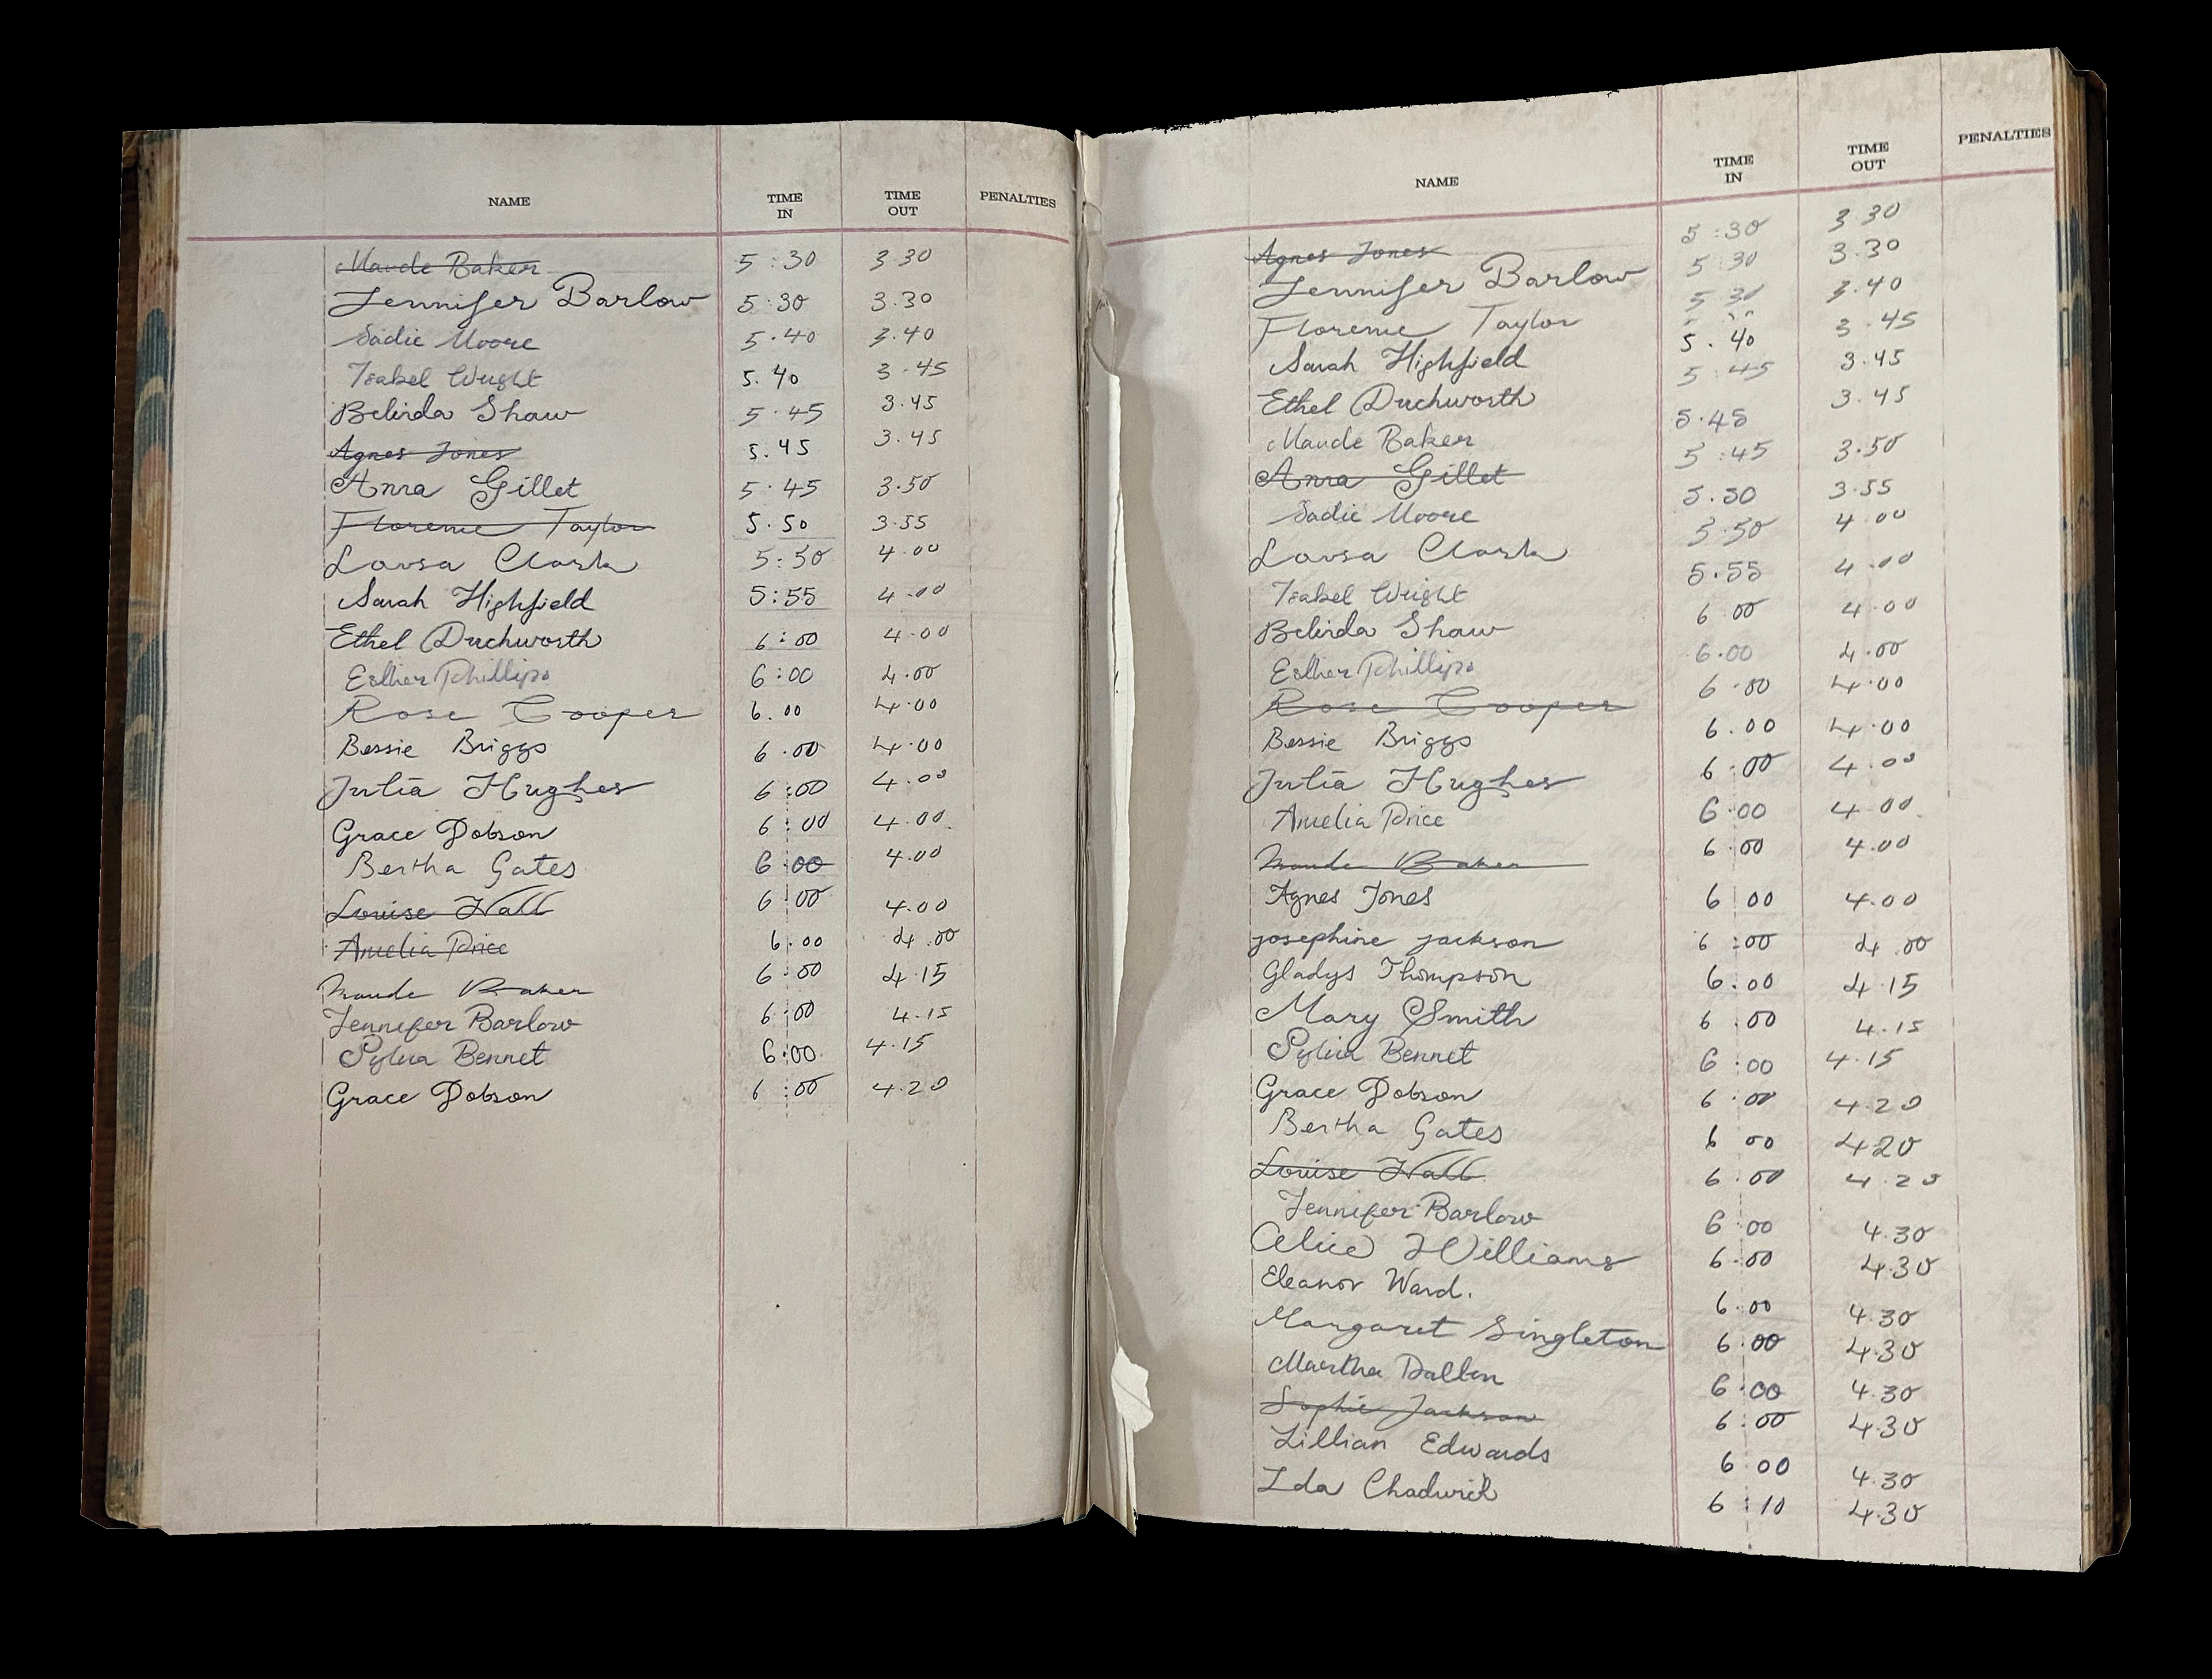 NAME TIME IN TIME OUT PENALTIES
Maude Baker 5:30 3 30
Jennifer Barlow 5:30 3.30
Sadie Moore 5.40 3.40
Isabel Wright 5.40 3.45
Belinda Shaw 5.45 3.45
Agnes Jones 5.45 3.45
Anna Gillet 5.45 3.50
Florence Taylor 5.50 3.55
Lousa Clark 5:50 4.00
Sarah Highfield 5:55 4.00
Ethel Duckworth 6:00 4.00
Esther Phillips 6:00 4.00
Rose Cooper 6.00 4.00
Bessie Briggs 6.00 4.00
Julia Hughes 6:00 4.00
Grace Dobson 6:00 4.00
Bertha Gates 6:00 4.00
Louise Hall 6:00 4.00
Amelia Price 6:00 4.00
Maude Baker 6:00 4.15
Jennifer Barlow 6:00 4.15
Sylvia Bennet 6:00 4.15
Grace Dobson 6:00 4.20
NAME TIME IN TIME OUT PENALTIES
Agnes Jones 5:30 3 30
Jennifer Barlow 5 30 3.30
Florence Taylor 5 30 3.40
Sarah Highfield 5.40 3.45
Ethel Duckworth 5:45 3.45
Maude Baker 5.45 3.45
Anna Gillet 5:45 3.50
Sadie Moore 5.50 3.55
Lousa Clark 5:50 4.00
Isabel Wright 5.55 4.00
Belinda Shaw 6 00 4.00
Esther Phillips 6.00 4.00
Rose Cooper 6.00 4.00
Bessie Briggs 6.00 4.00
Julia Hughes 6.00 4.00
Amelia Price 6.00 4 00
Maude Baker 6.00 4.00
Agnes Jones 6 00 4.00
josephine jackson 6:00 4.00
Gladys Thompson 6.00 4.15
Mary Smith 6:00 4.15
Sylvia Bennet 6:00 4.15
Grace Dobson 6.00 4.20
Bertha Gates 6 00 420
Louise Hall 6.00 4.20
Jennifer Barlow 6 00 4.30
Alice Williams 6.00 4.30
Eleanor Ward. 6.00 4.30
Margaret Singleton 6.00 4.30
Martha Dalton 6.00 4.30
Sophie Jackson 6.00 4.30
Lillian Edwards 6 00 4.30
Ida Chadwick 6:10 4.30